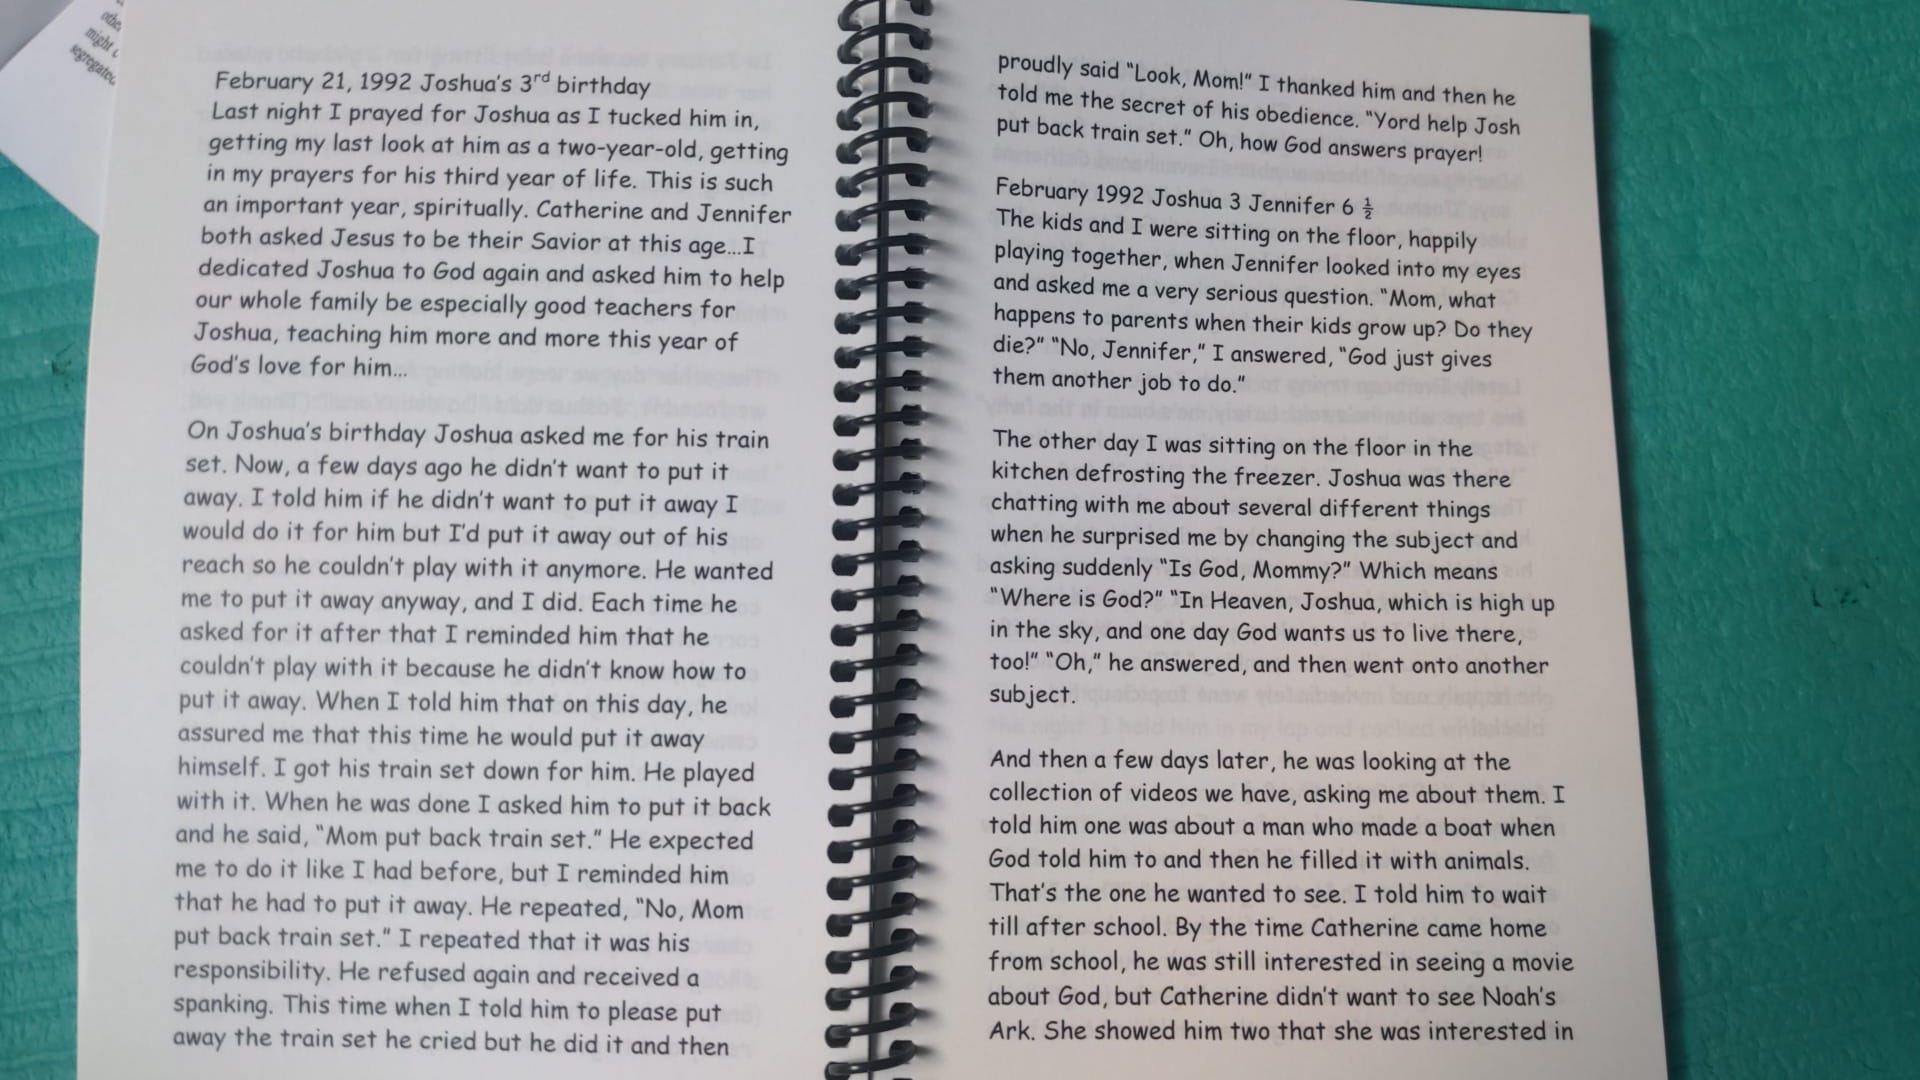 othe
might c
segregated
February 21, 1992 Joshua's 3rd birthday
Last night I prayed for Joshua as I tucked him in,
getting my last look at him as a two-year-old, getting
in my prayers for his third year of life. This is such
an important year, spiritually. Catherine and Jennifer
both asked Jesus to be their Savior at this age...I
dedicated Joshua to God again and asked him to help
our whole family be especially good teachers for
Joshua, teaching him more and more this year of
God's love for him...
On Joshua's birthday Joshua asked me for his train
set. Now, a few days ago he didn't want to put it
away. I told him if he didn't want to put it away I
would do it for him but I'd put it away out of his
reach so he couldn't play with it anymore. He wanted
me to put it away anyway, and I did. Each time he
asked for it after that I reminded him that he
couldn't play with it because he didn't know how to
put it away. When I told him that on this day, he
assured me that this time he would put it away
himself. I got his train set down for him. He played
with it. When he was done I asked him to put it back
and he said, "Mom put back train set." He expected
me to do it like I had before, but I reminded him
that he had to put it away. He repeated, "No, Mom
put back train set." I repeated that it was his
responsibility. He refused again and received a
spanking. This time when I told him to please put
away the train set he cried but he did it and then
proudly said "Look, Mom!" I thanked him and then he
told me the secret of his obedience. "Yord help Josh
put back train set." Oh, how God answers prayer!
February 1992 Joshua 3 Jennifer 6 ½
The kids and I were sitting on the floor, happily
playing together, when Jennifer looked into my eyes
and asked me a very serious question. "Mom, what
happens to parents when their kids grow up? Do they
die?" "No, Jennifer," I answered, "God just gives
them another job to do."
The other day I was sitting on the floor in the
kitchen defrosting the freezer. Joshua was there
chatting with me about several different things
when he surprised me by changing the subject and
asking suddenly "Is God, Mommy?" Which means
"Where is God?" "In Heaven, Joshua, which is high up
in the sky, and one day God wants us to live there,
too!" "Oh," he answered, and then went onto another
subject.
And then a few days later, he was looking at the
collection of videos we have, asking me about them. I
told him one was about a man who made a boat when
God told him to and then he filled it with animals.
That's the one he wanted to see. I told him to wait
till after school. By the time Catherine came home
from school, he was still interested in seeing a movie
about God, but Catherine didn't want to see Noah's
Ark. She showed him two that she was interested in